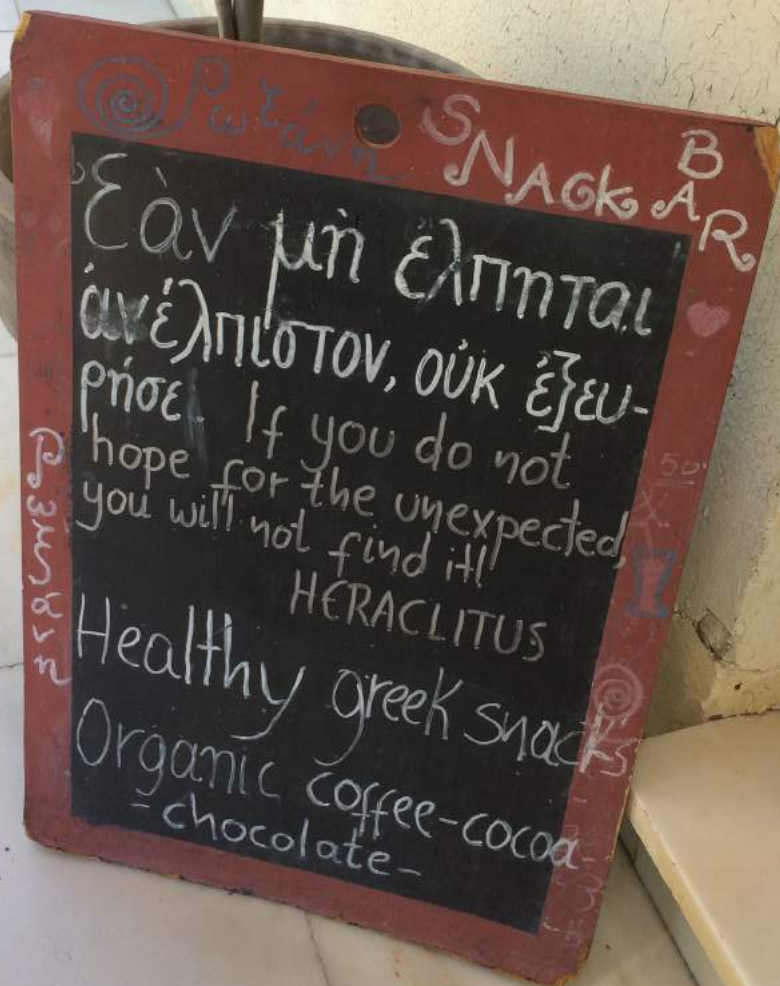 Ρωξάνη
SNACK BAR
Ἐὰν μὴ ἔλπηται
ἀνέλπιστον, οὐκ ἐξευ-
ρήσε.
If you do not
hope for the unexpected,
you will not find it!
HERACLITUS
Healthy greek snacks
Organic coffee-cocoa-
-chocolate-
50